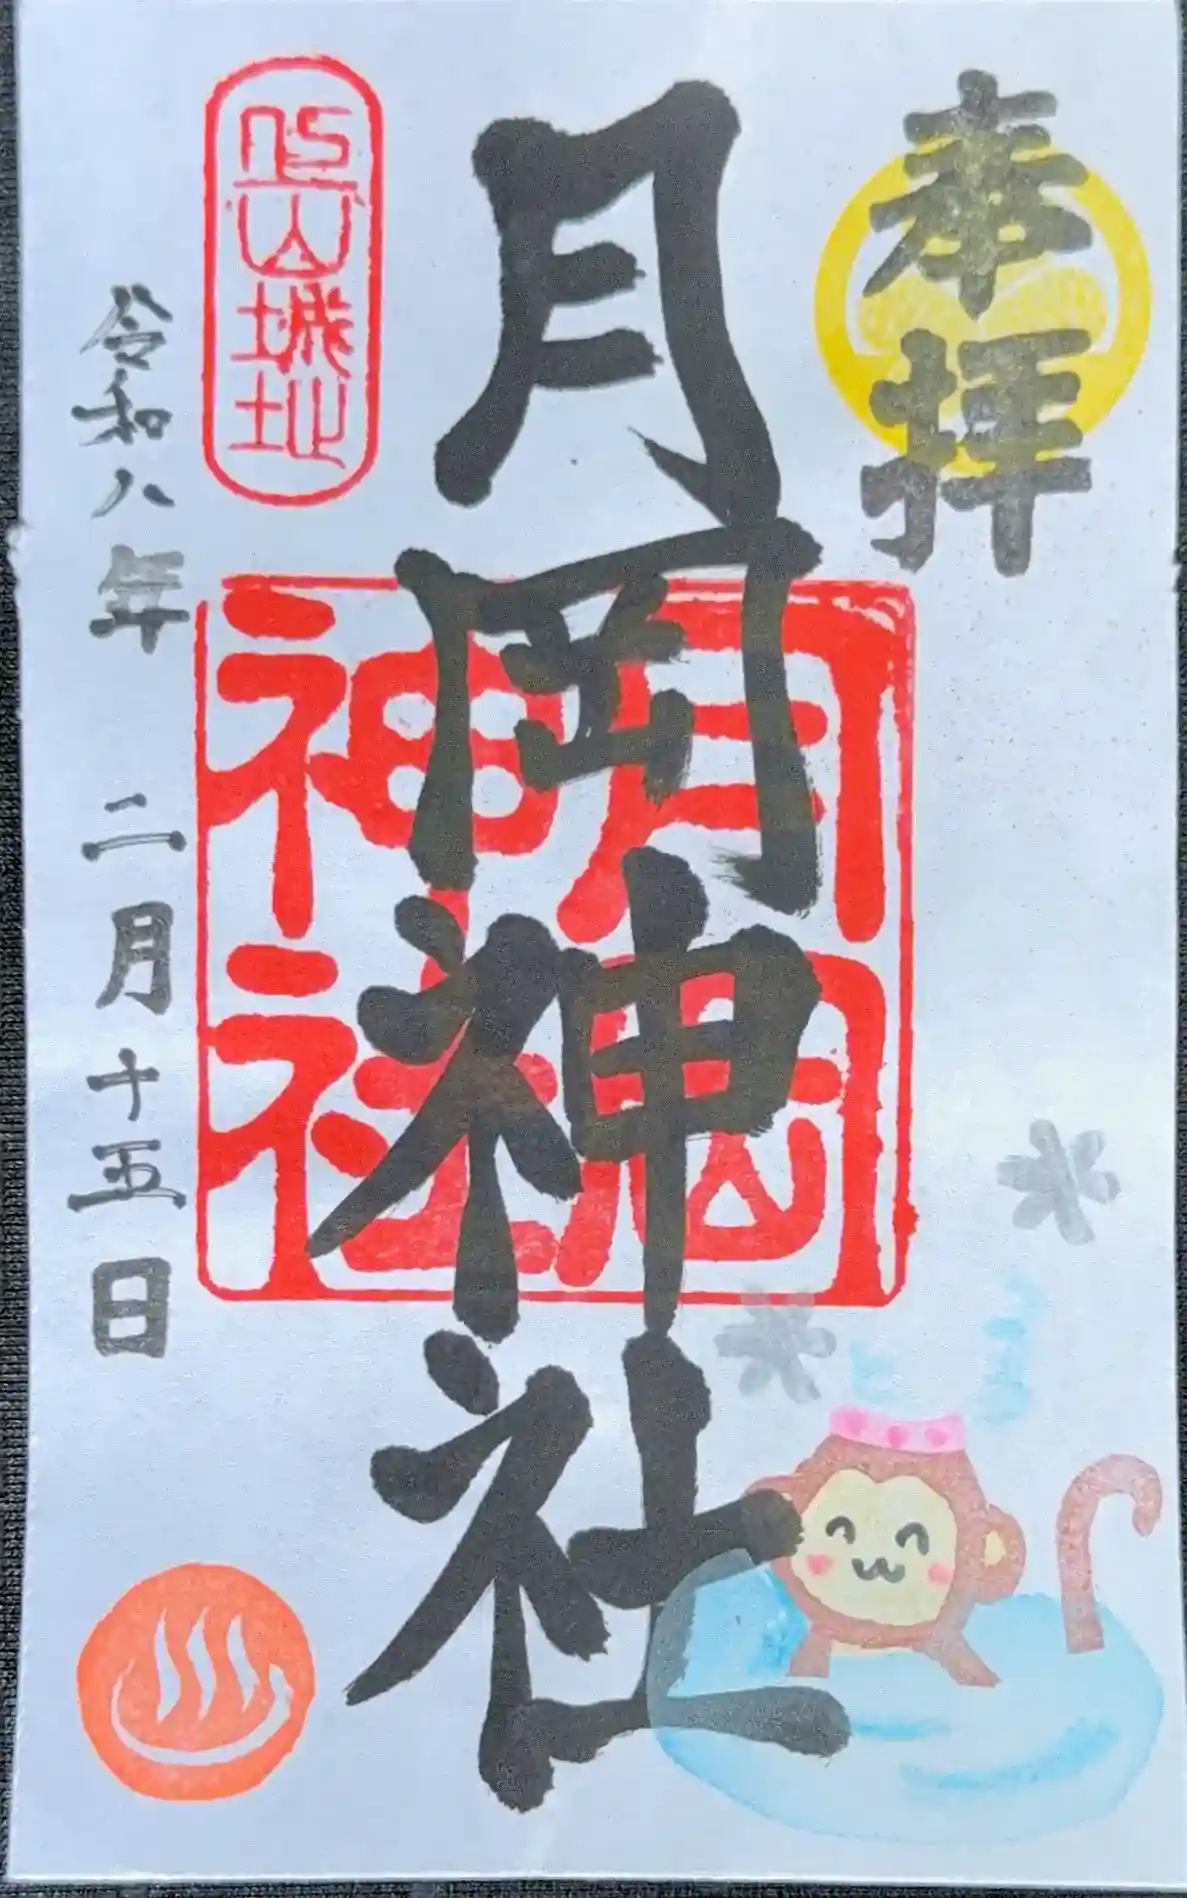 奉拝
月岡神社
月岡
神社
城址
令和八年 二月十五日